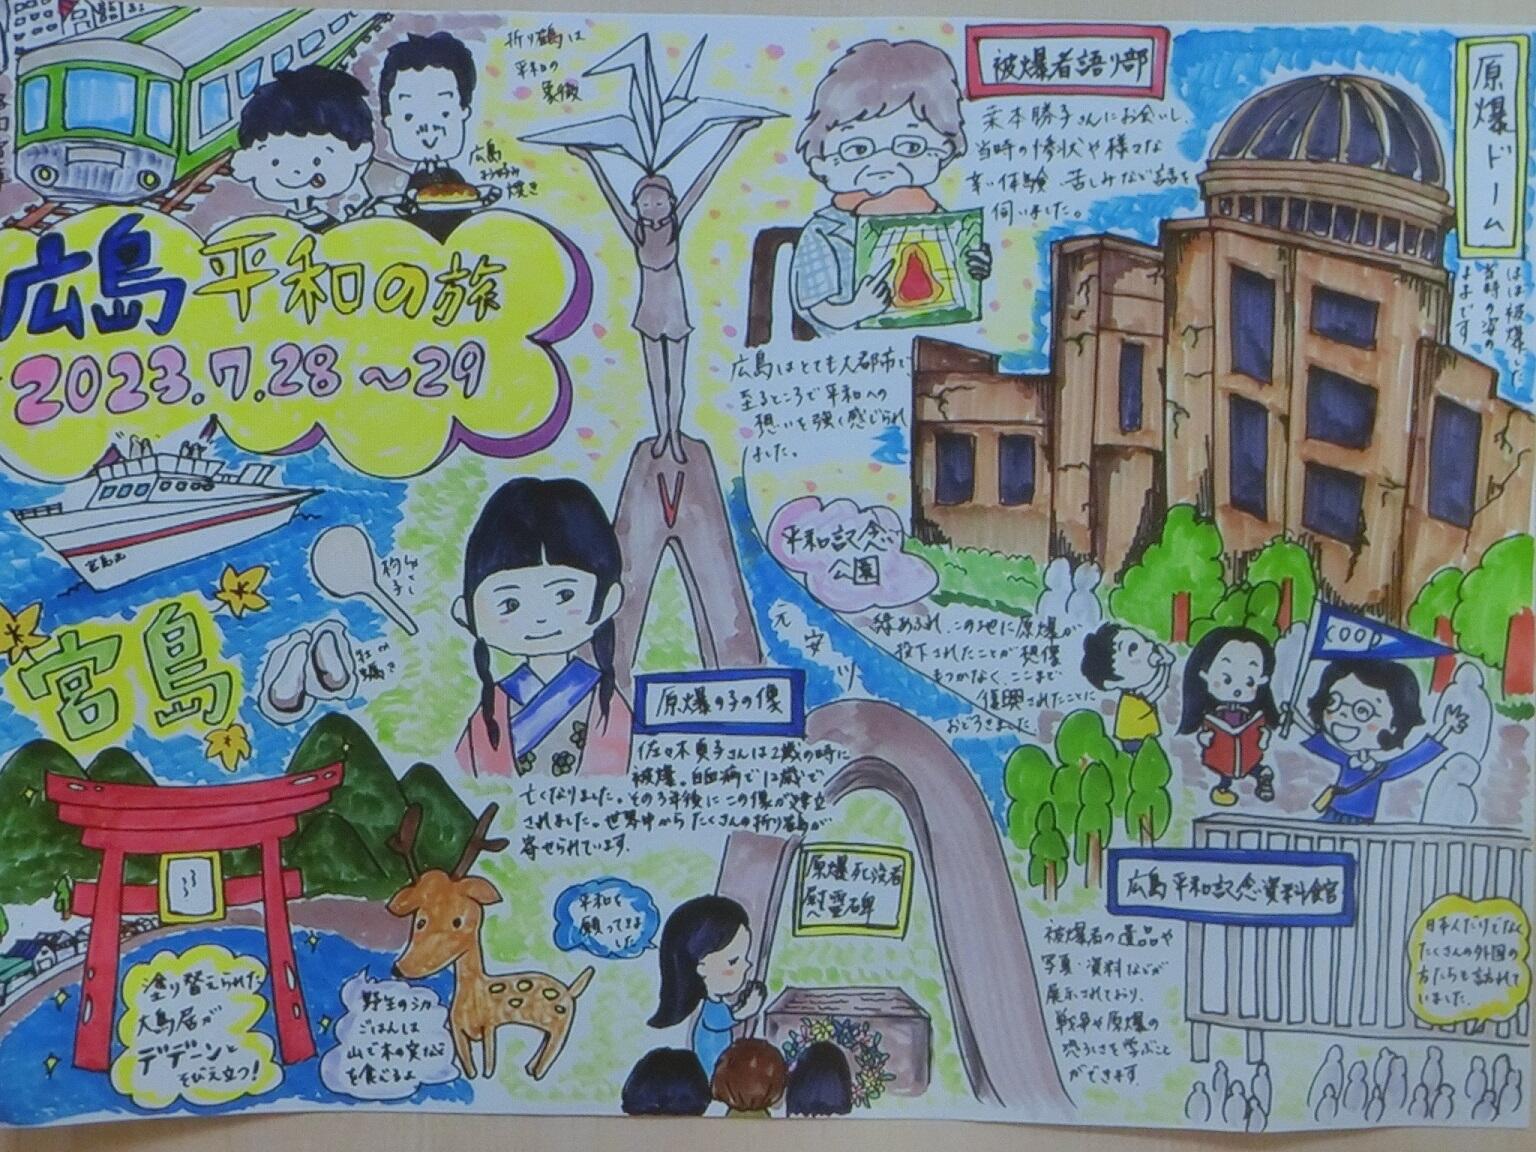 折り鶴は
平和の
象徴
広島
お好み
焼き
広島平和の旅
2023.7.28～29
被爆者語り部
葉本勝子さんにお会いし、
当時の惨状や様々な
辛い体験、苦しみなど話を
伺いました。
原爆ドーム
ほぼ被爆した
当時の姿の
ままです
広島はとても大都市で
至るところで平和への
想いを強く感じられ
ました。
平和記念
公園
緑あふれ、この地に原爆が
投下されたことが想像
もつかなく、ここまで
復興されたことに
おどろきました
元安川
COOP
宮島
杓子
しゃくし
牡蠣
かき
原爆の子の像
佐々木貞子さんは2歳の時に
被爆。白血病で12歳で
亡くなりました。その3年後にこの像が建立
されました。世界中からたくさんの折り鶴が
寄せられています。
原爆死没者
慰霊碑
平和を
願ってきま
した
広島平和記念資料館
被爆者の遺品や
写真・資料などが
展示されており、
戦争や原爆の
恐ろしさを学ぶこと
ができます。
日本人だけでなく
たくさんの外国の
方たちも訪れて
いました。
塗り替えられた
大鳥居が
デデーンと
そびえ立つ！
野生のシカ
ごはんは
山で木の実など
を食べるよ